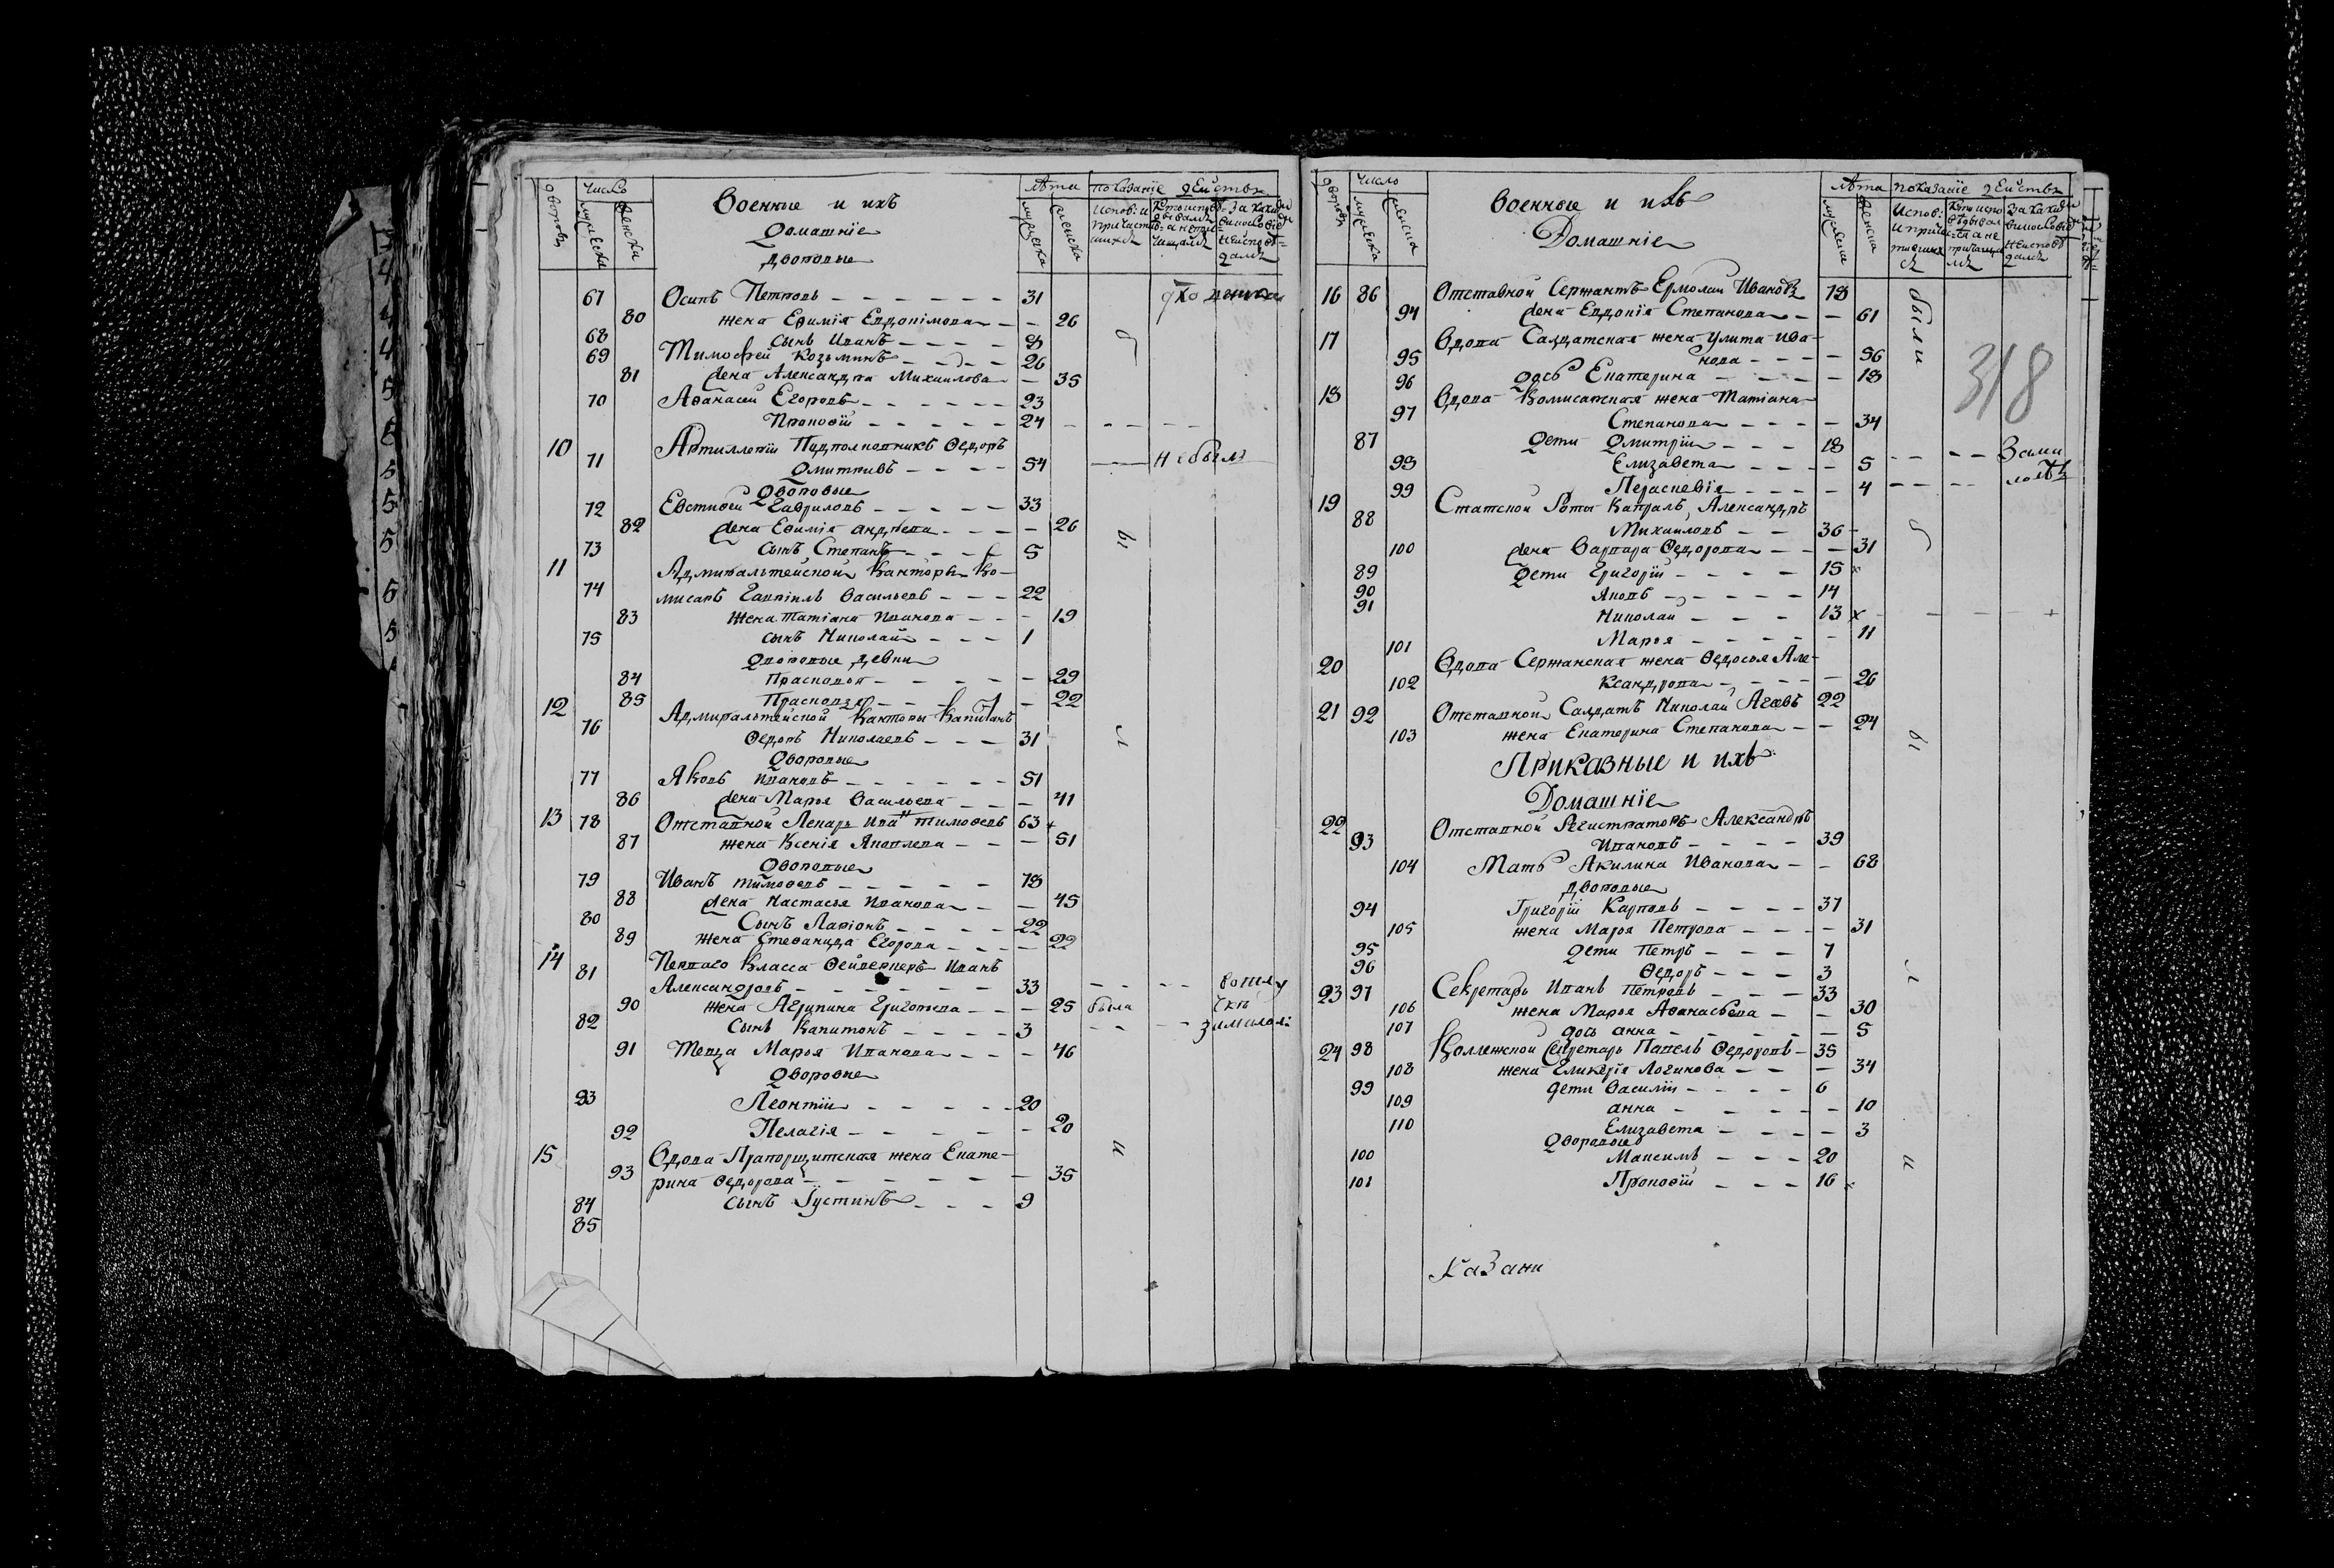 дворовъ
число
мужеска
женска
Военные и ихъ
Домашнїе
дворовые
лѣта
мужеска
женска
показанїе действъ
67 Осипъ Петровъ 31
80 жена Еѳимїя Евдокимова 26
68 сынъ Иванъ 8
69 Тимофей Козьминъ 26
81 жена Александра Михаилова 35
70 Аѳанасей Егоровъ 23
Прокофїй 24
10 Артиллерїи Подполковникъ Ѳедоръ
71 Дмитревъ 54 небылъ
Дворовые
72 Евстифей Гавриловъ 33
82 жена Еѳимїя андреева 26
73 сынъ Степанъ 5
11 Адмиралтейской Канторы Ко-
74 мисаръ Гаврїилъ Васильевъ 22
83 Жена татїана Иванова 19
75 сынъ Николай 1
Дворовые девки
84 Прасковья 29
85 Прасковья 22
12 Адмиралтейской Канторы Капитанъ
76 Ѳедоръ Николаевъ 31
Дворовые
77 Яковъ Ивановъ 51
86 жена Марья Васильева 41
13 78 Отставной Лекарь Иванъ тимоѳевъ 63
87 жена Ксенїя Яковлева 51
Дворовые
79 Иванъ тимоѳевъ 78
88 жена Настасья Иванова 45
80 Сынъ Ларїонъ 22
89 жена Стеѳанида Егорова 22
14 Перваго Класса Фейверкеръ Иванъ
81 Александровъ 33
90 жена Агрипина Григорьева 25 была
82 Сынъ Капитонъ 3
91 Теща Марья Иванова 46
Дворовые
83 Леонтїи 20
92 Пелагїя 20
15 Вдова Прапорщитская жена Екате-
93 рина Ѳедорова 35
84 сынъ Іустинъ 9
85
дворовъ
Число
мужеска
женска
Военные и ихъ
Домашнїе
лѣта
мужеска
женска
показанїе действъ
16 86 Отставной Сержантъ Ермолай Ивановъ 78 были
94 жена Евдокїя Степанова 61
17 Вдова Салдатская жена улита ива-
95 нова 56
318
96 дочь Екатерина 18
18 Вдова Комисарская жена Татїана
97 Степанова 34
87 Дети Дмитрїи 18
98 Елизавета 5 За мал
99 Пераскевїя 4 лолѣт
19 Статской Роты Капралъ, Александръ
88 Михаиловъ 36
100 жена Варвара Ѳедорова 31
89 Дети Григорїй 15
90 Яковъ 14
91 Николай 13
101 Марья 11
20 Вдова Сержанская жена Ѳедосья Але-
102 ксандрова 26
21 92 Отставной Салдатъ Николай Агаѳъ 22
103 жена Екатерина Степанова 24
Приказные и ихъ
Домашнїе
22 Отставной Регистраторъ Александръ
93 Ивановъ 39
104 Мать Акилина Иванова 68
Дворовые
94 Григорїй Карповъ 37
105 жена Марья Петрова 31
95 Дети Петръ 7
96 Ѳедоръ 3
23 97 Секретарь Иванъ Петровъ 33
106 жена Марья Аѳанасьева 30
107 дочь анна 5
24 98 Коллежской Секретарь Павелъ Ѳедоровъ 35
108 жена Гликерїя Логинова 34
99 дети Василїи 6
109 анна 10
110 Елизавета 3
Дворовые
100 Максимъ 20
101 Прокофїй 16
Казани